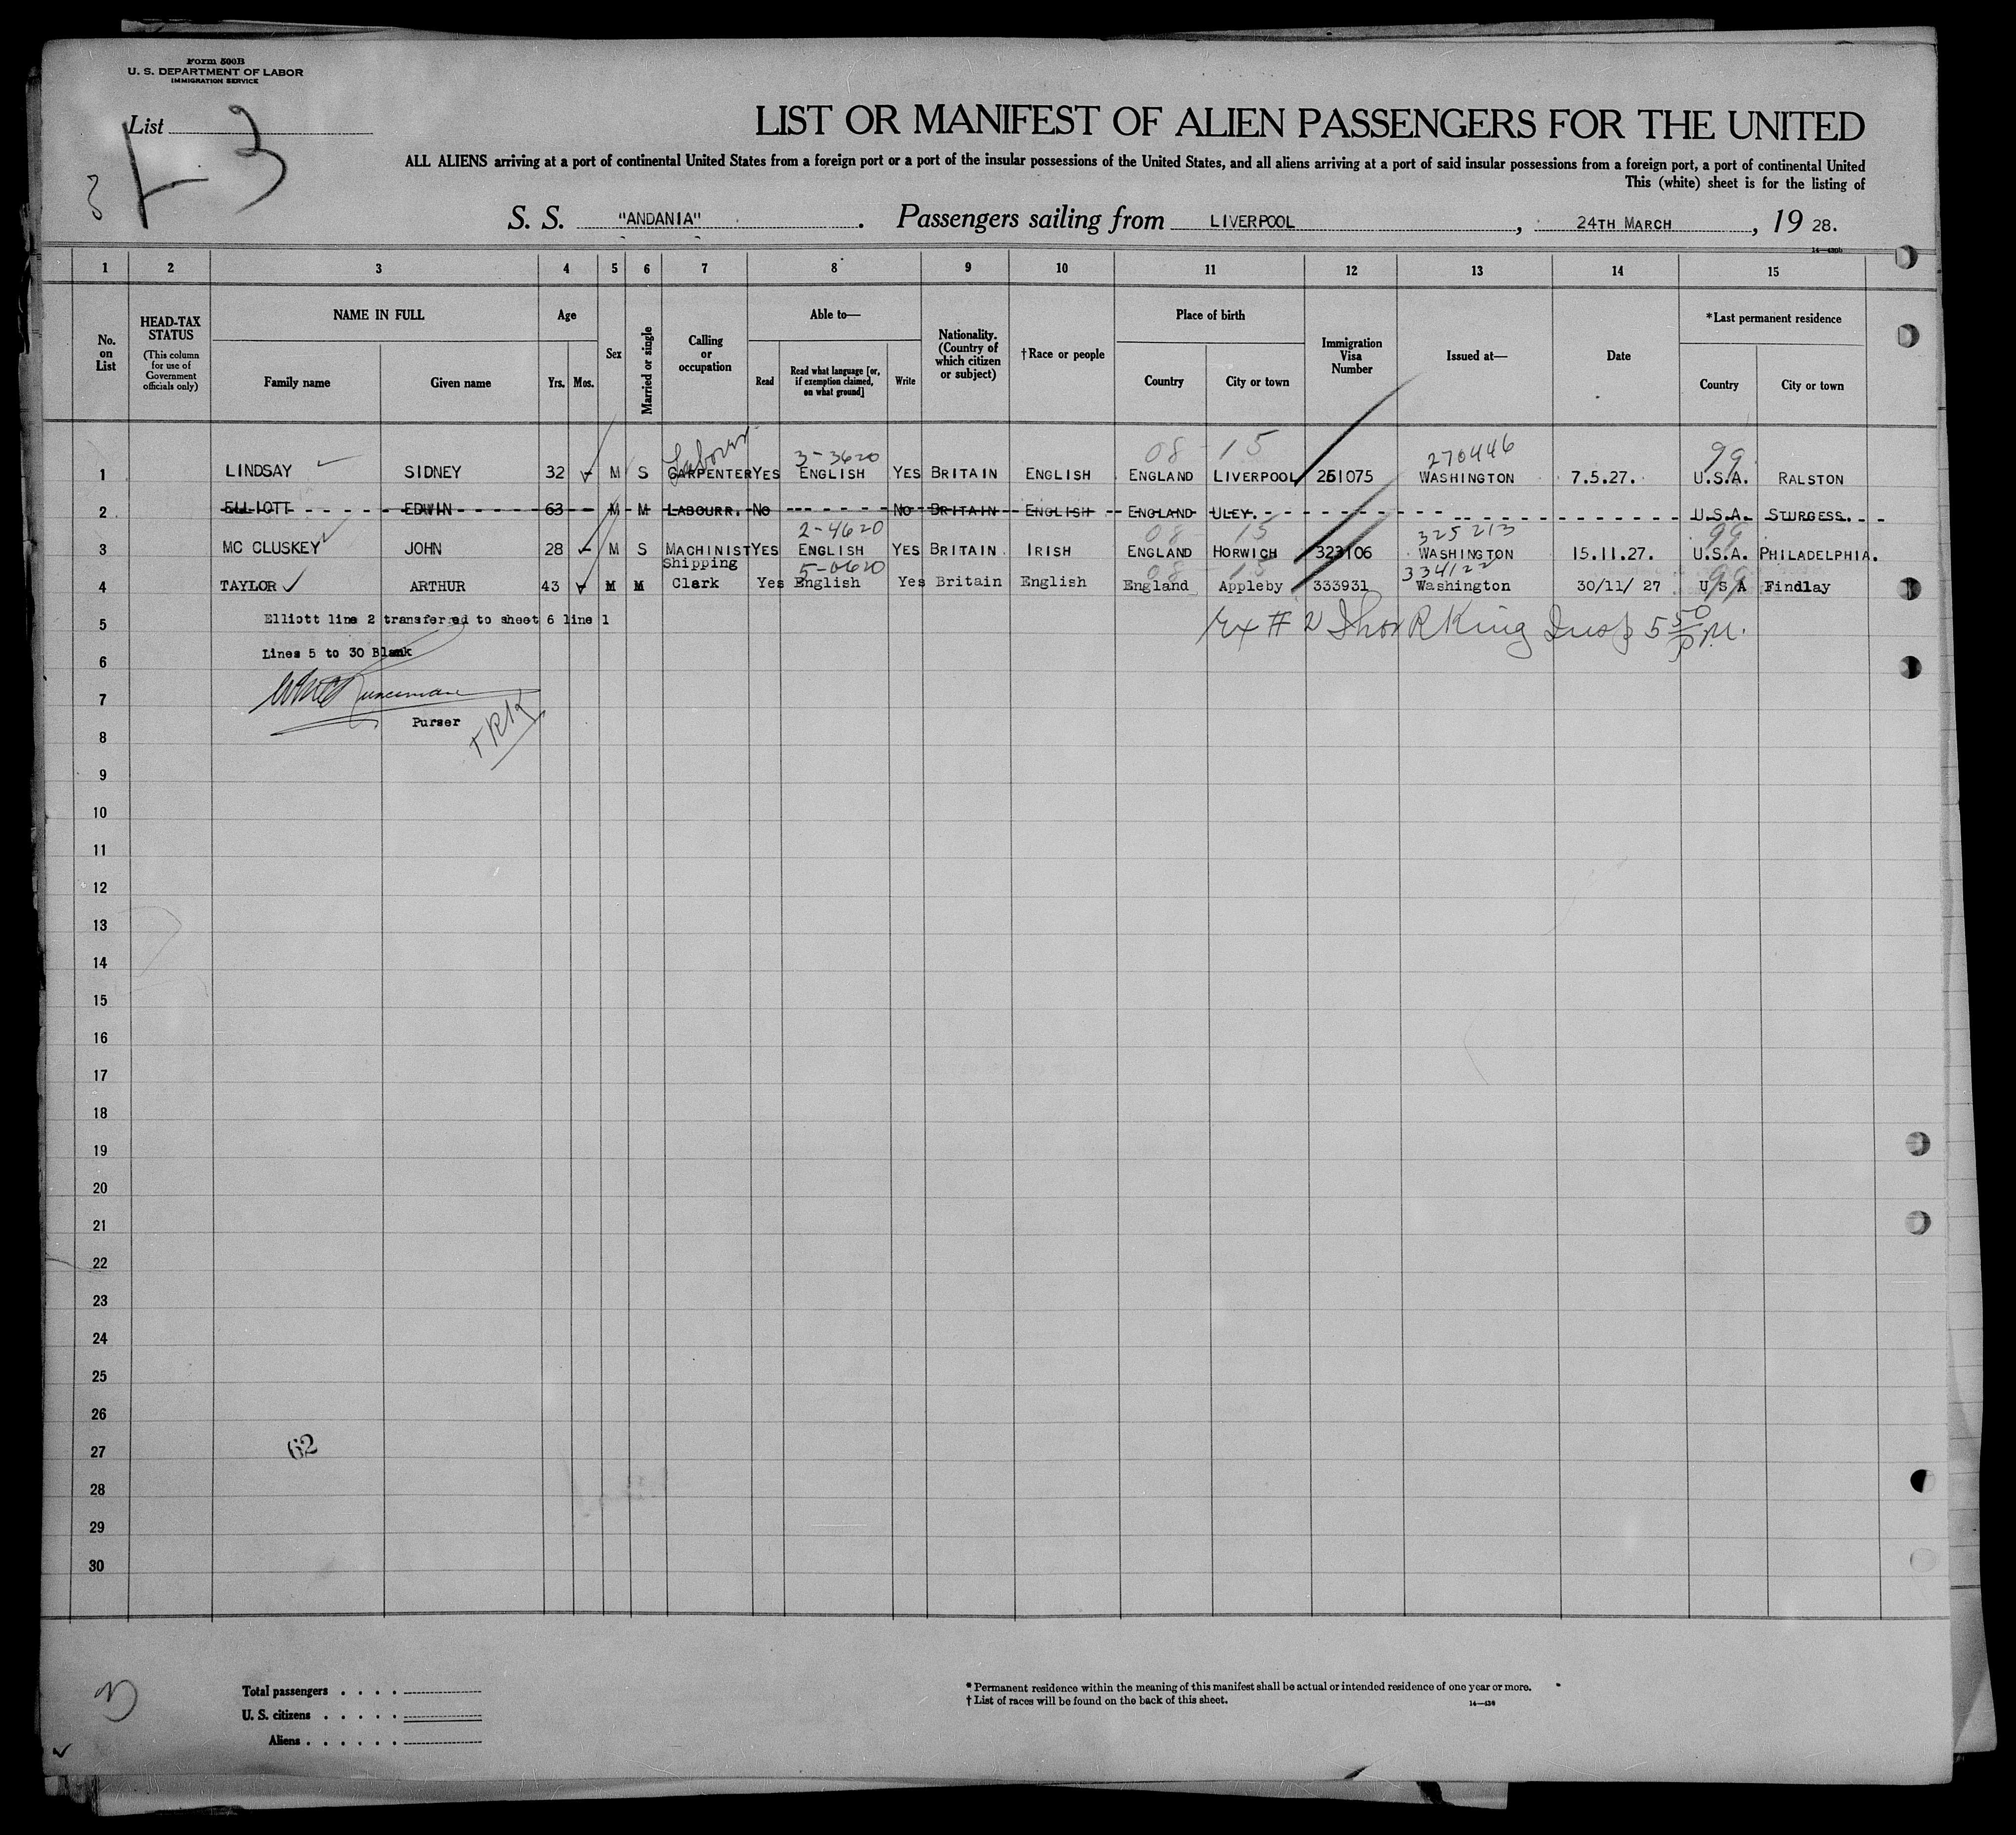 Form 500B
U. S. DEPARTMENT OF LABOR
IMMIGRATION SERVICE
List
3
LIST OR MANIFEST OF ALIEN PASSENGERS FOR THE UNITED
ALL ALIENS arriving at a port of continental United States from a foreign port or a port of the insular possessions of the United States, and all aliens arriving at a port of said insular possessions from a foreign port, a port of continental United
This (white) sheet is for the listing of
S. S. "ANDANIA". Passengers sailing from LIVERPOOL, 24TH MARCH, 19 28.
1 2 3 4 5 6 7 8 9 10 11 12 13 14 15
No. on List
HEAD-TAX STATUS (This column for use of Government officials only)
NAME IN FULL
Family name Given name
Age
Yrs. Mos.
Sex
Married or single
Calling or occupation
Able to—
Read Read what language [or, if exemption claimed, on what ground] Write
Nationality. (Country of which citizen or subject)
†Race or people
Place of birth
Country City or town
Immigration Visa Number
Issued at—
Date
*Last permanent residence
Country City or town
Labourer 3-3620 08 - 15 270446 99
1 LINDSAY SIDNEY 32 M S CARPENTER YES ENGLISH YES BRITAIN ENGLISH ENGLAND LIVERPOOL 261075 WASHINGTON 7.5.27. U.S.A. RALSTON
2 ELLIOTT EDWIN 63 M M LABOURR. NO NO BRITAIN ENGLISH ENGLAND ULEY. U.S.A. STURGESS.
2-4620 08 - 15 325213 99
3 MC CLUSKEY JOHN 28 M S MACHINIST YES ENGLISH YES BRITAIN IRISH ENGLAND HORWICH 323106 WASHINGTON 15.11.27. U.S.A. PHILADELPHIA.
Shipping 5-0620 08 - 15 334122 99
4 TAYLOR ARTHUR 43 M M Clerk Yes English Yes Britain English England Appleby 333931 Washington 30/11/ 27 U S A Findlay
5 Elliott line 2 transferred to sheet 6 line 1
R King Insp 5 50 P.M.
Lines 5 to 30 Blank
6
7
Purser
8
9
10
11
12
13
14
15
16
17
18
19
20
21
22
23
24
25
26
27
62
28
29
30
Total passengers . . . .
U. S. citizens . . . . .
Aliens . . . . . .
* Permanent residence within the meaning of this manifest shall be actual or intended residence of one year or more.
† List of races will be found on the back of this sheet.